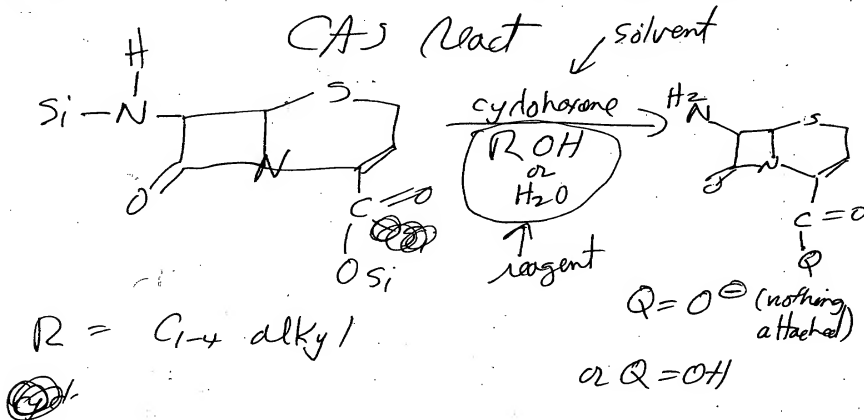 CAS react
solvent
H
Si-N
S
N
O
C=O
O Si
cyclohexane
ROH
or
H2O
reagent
H2N
S
N
O
C=O
Q
Q=O⊖ (nothing
attached)
or Q=OH
R = C1-4 alkyl